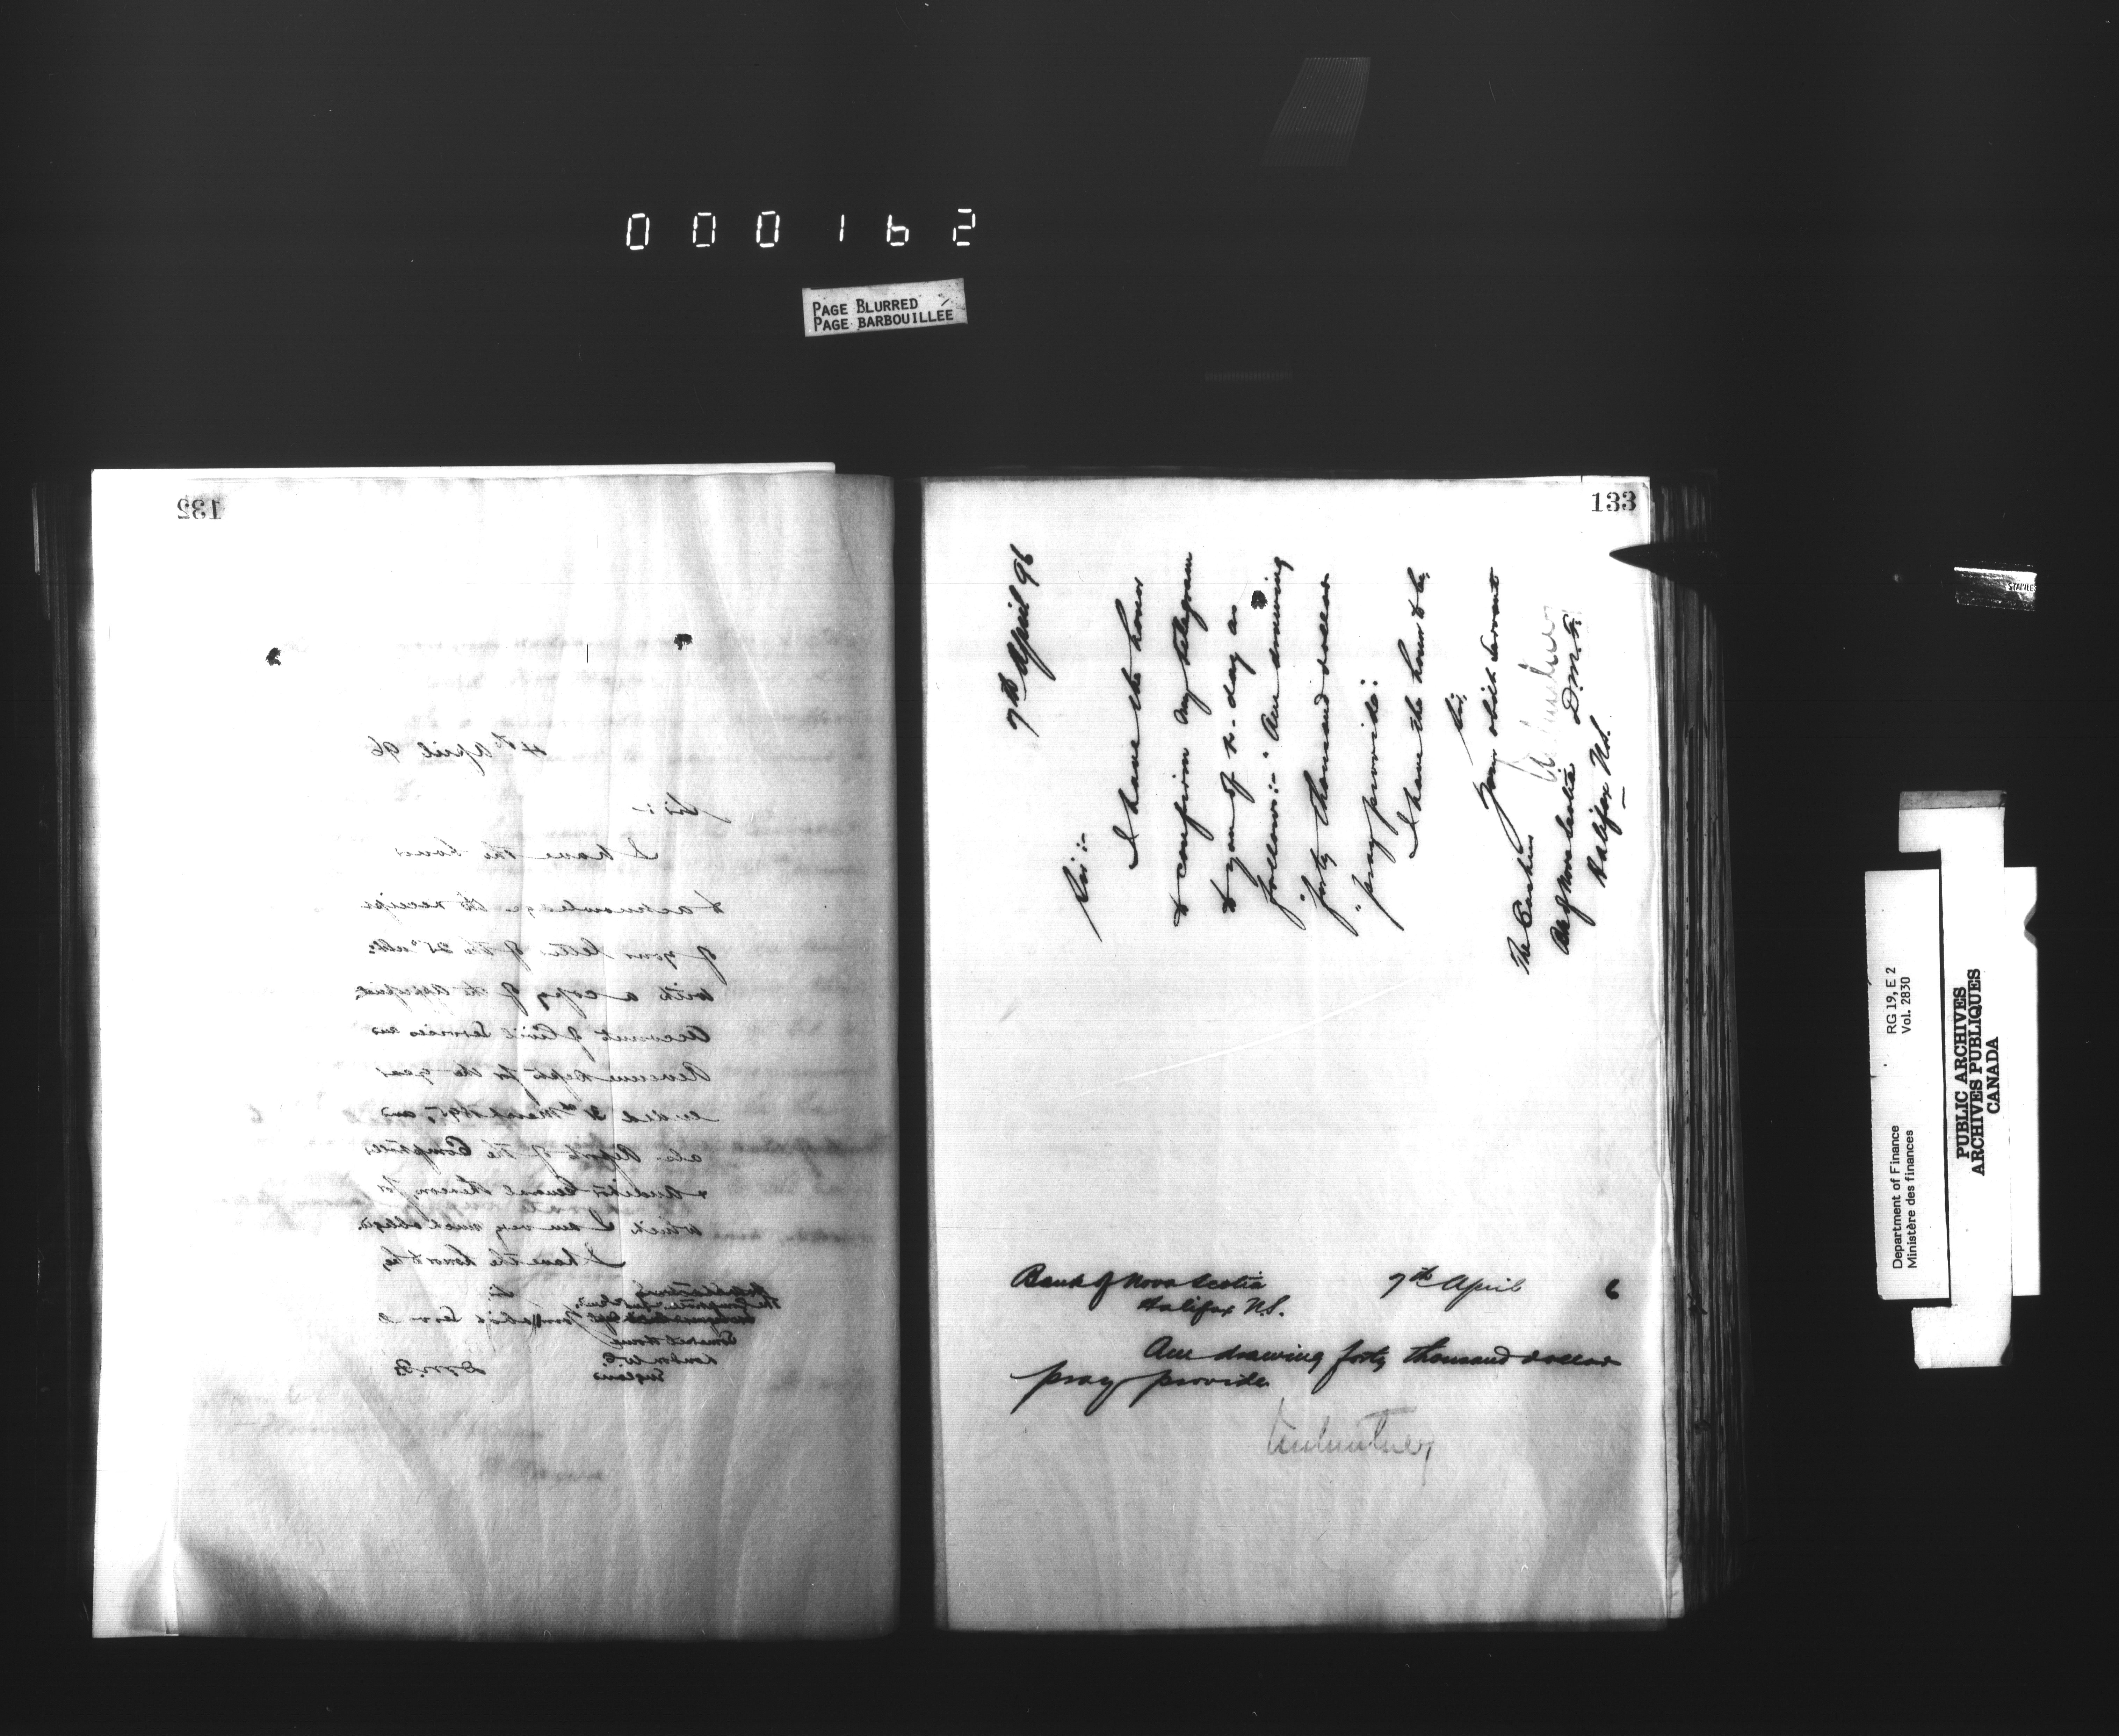 000162
PAGE BLURRED
PAGE BARBOUILLEE
132
4th April 96
Sir :-
I have the honor
to acknowledge the receipt
of your letter of the 25th ulto
with a copy of the Appropriation
Accounts of Civil Services and
Revenue Depts for the year
ended 31st March 1895, and
also Report of the Comptroller
& Auditor General thereon, for
which I am very much obliged.
I have the honor to be,
Sir
Your obdt Servt
The Comptroller &
Somerset House
London W.C.
England
D.M.F.
133
7th April 96
Sir :-
I have the honor
to confirm my telegram
to you of to-day as
follows :- "Am drawing
"forty thousand dollars
"pray provide :
I have the honor to be,
Sir,
Your obdt Servant
D.M.F.
The Cashier
Bk of Nova Scotia
Halifax N.S.
Bank of Nova Scotia
Halifax N.S.
7th April 6
Am drawing forty thousand dollars
pray provide
RG 19, E 2
Vol. 2830
Department of Finance
Ministère des finances
PUBLIC ARCHIVES
ARCHIVES PUBLIQUES
CANADA